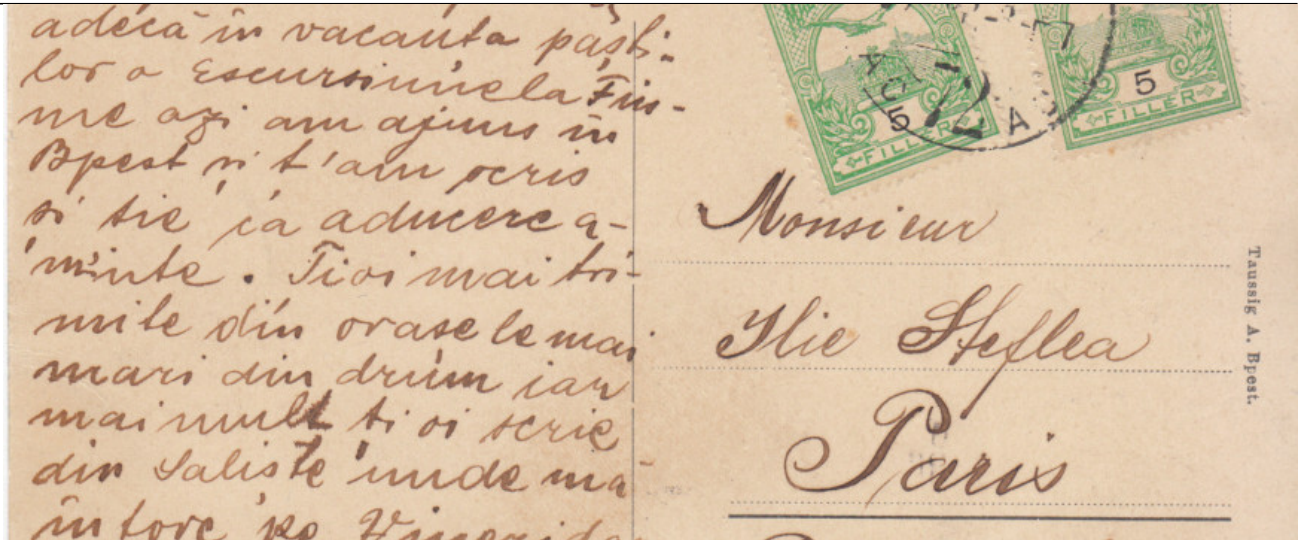 adecă în vacanta pasti-
lor o Escursiune la Fiu-
me azi am ajuns in
Bpest si t'am scris
si tie ca aducere a-
minte. Tioi mai tri-
mite din orase le mai
mari din drum iar
mai mult ti oi scrie
din Saliste unde mă
intorc pe Vineri
5
FILLER
5
FILLER
72
Monsieur
Ilie Steflea
Paris
Taussig A. Bpest.